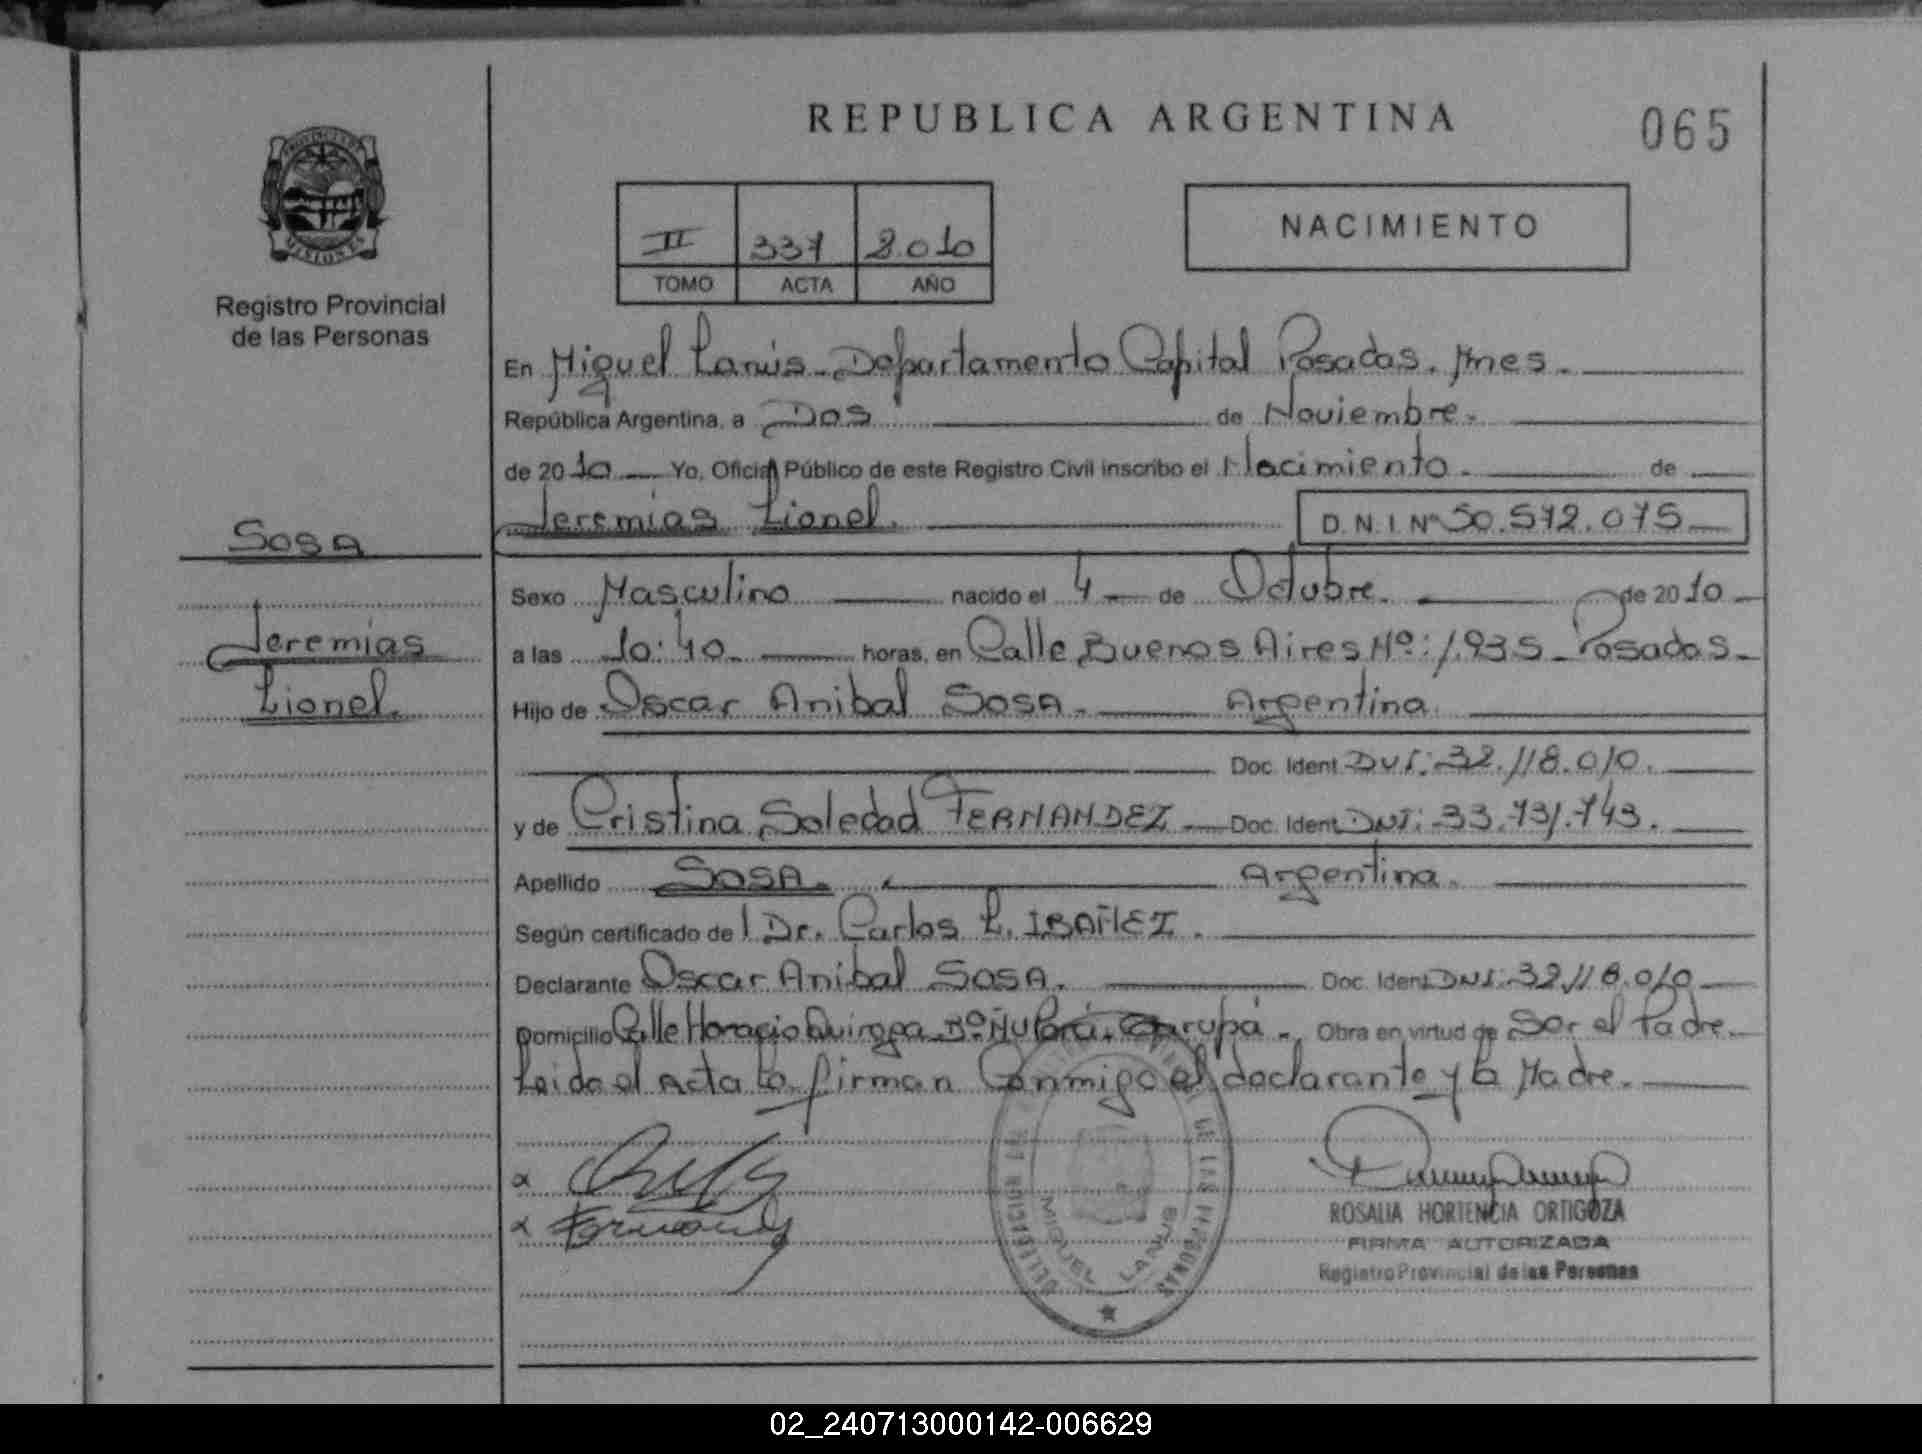 REPUBLICA ARGENTINA
065
PROVINCIA DE
MISIONES
Registro Provincial
de las Personas
II 337 2.010
TOMO ACTA AÑO
NACIMIENTO
En Miguel Lanús - Departamento Capital Posadas. Mnes.
República Argentina, a Dos de Noviembre.
de 2010 Yo, Oficial Público de este Registro Civil inscribo el Nacimiento. de
Jeremías Lionel. D.N.I. Nº 50.572.075
SOSA
Jeremías
Lionel.
Sexo Masculino nacido el 4 de Octubre. de 2010
a las 10:40 horas, en Calle Buenos Aires Nº: 1.935 - Posadas -
Hijo de Oscar Anibal SOSA - Argentina.
Doc. Ident. DNI: 32.118.010.
y de Cristina Soledad FERNANDEZ - Doc. Ident. DNI: 33.731.743.
Apellido SOSA. Argentina.
Según certificado del Dr. Carlos L. IBAÑEZ.
Declarante Oscar Anibal SOSA. Doc. Ident. DNI: 32.118.010
Domicilio Calle Horacio Quiroga Bº Ñu Porá. Garupá -. Obra en virtud de Ser el Padre.
Leida el Acta la firman Conmigo el declarante y la Madre.
x
x Fernandez
MIGUEL LANUS
DE LAS PERSONAS
ROSALIA HORTENCIA ORTIGOZA
FIRMA AUTORIZADA
Registro Provincial de las Personas
02_240713000142-006629